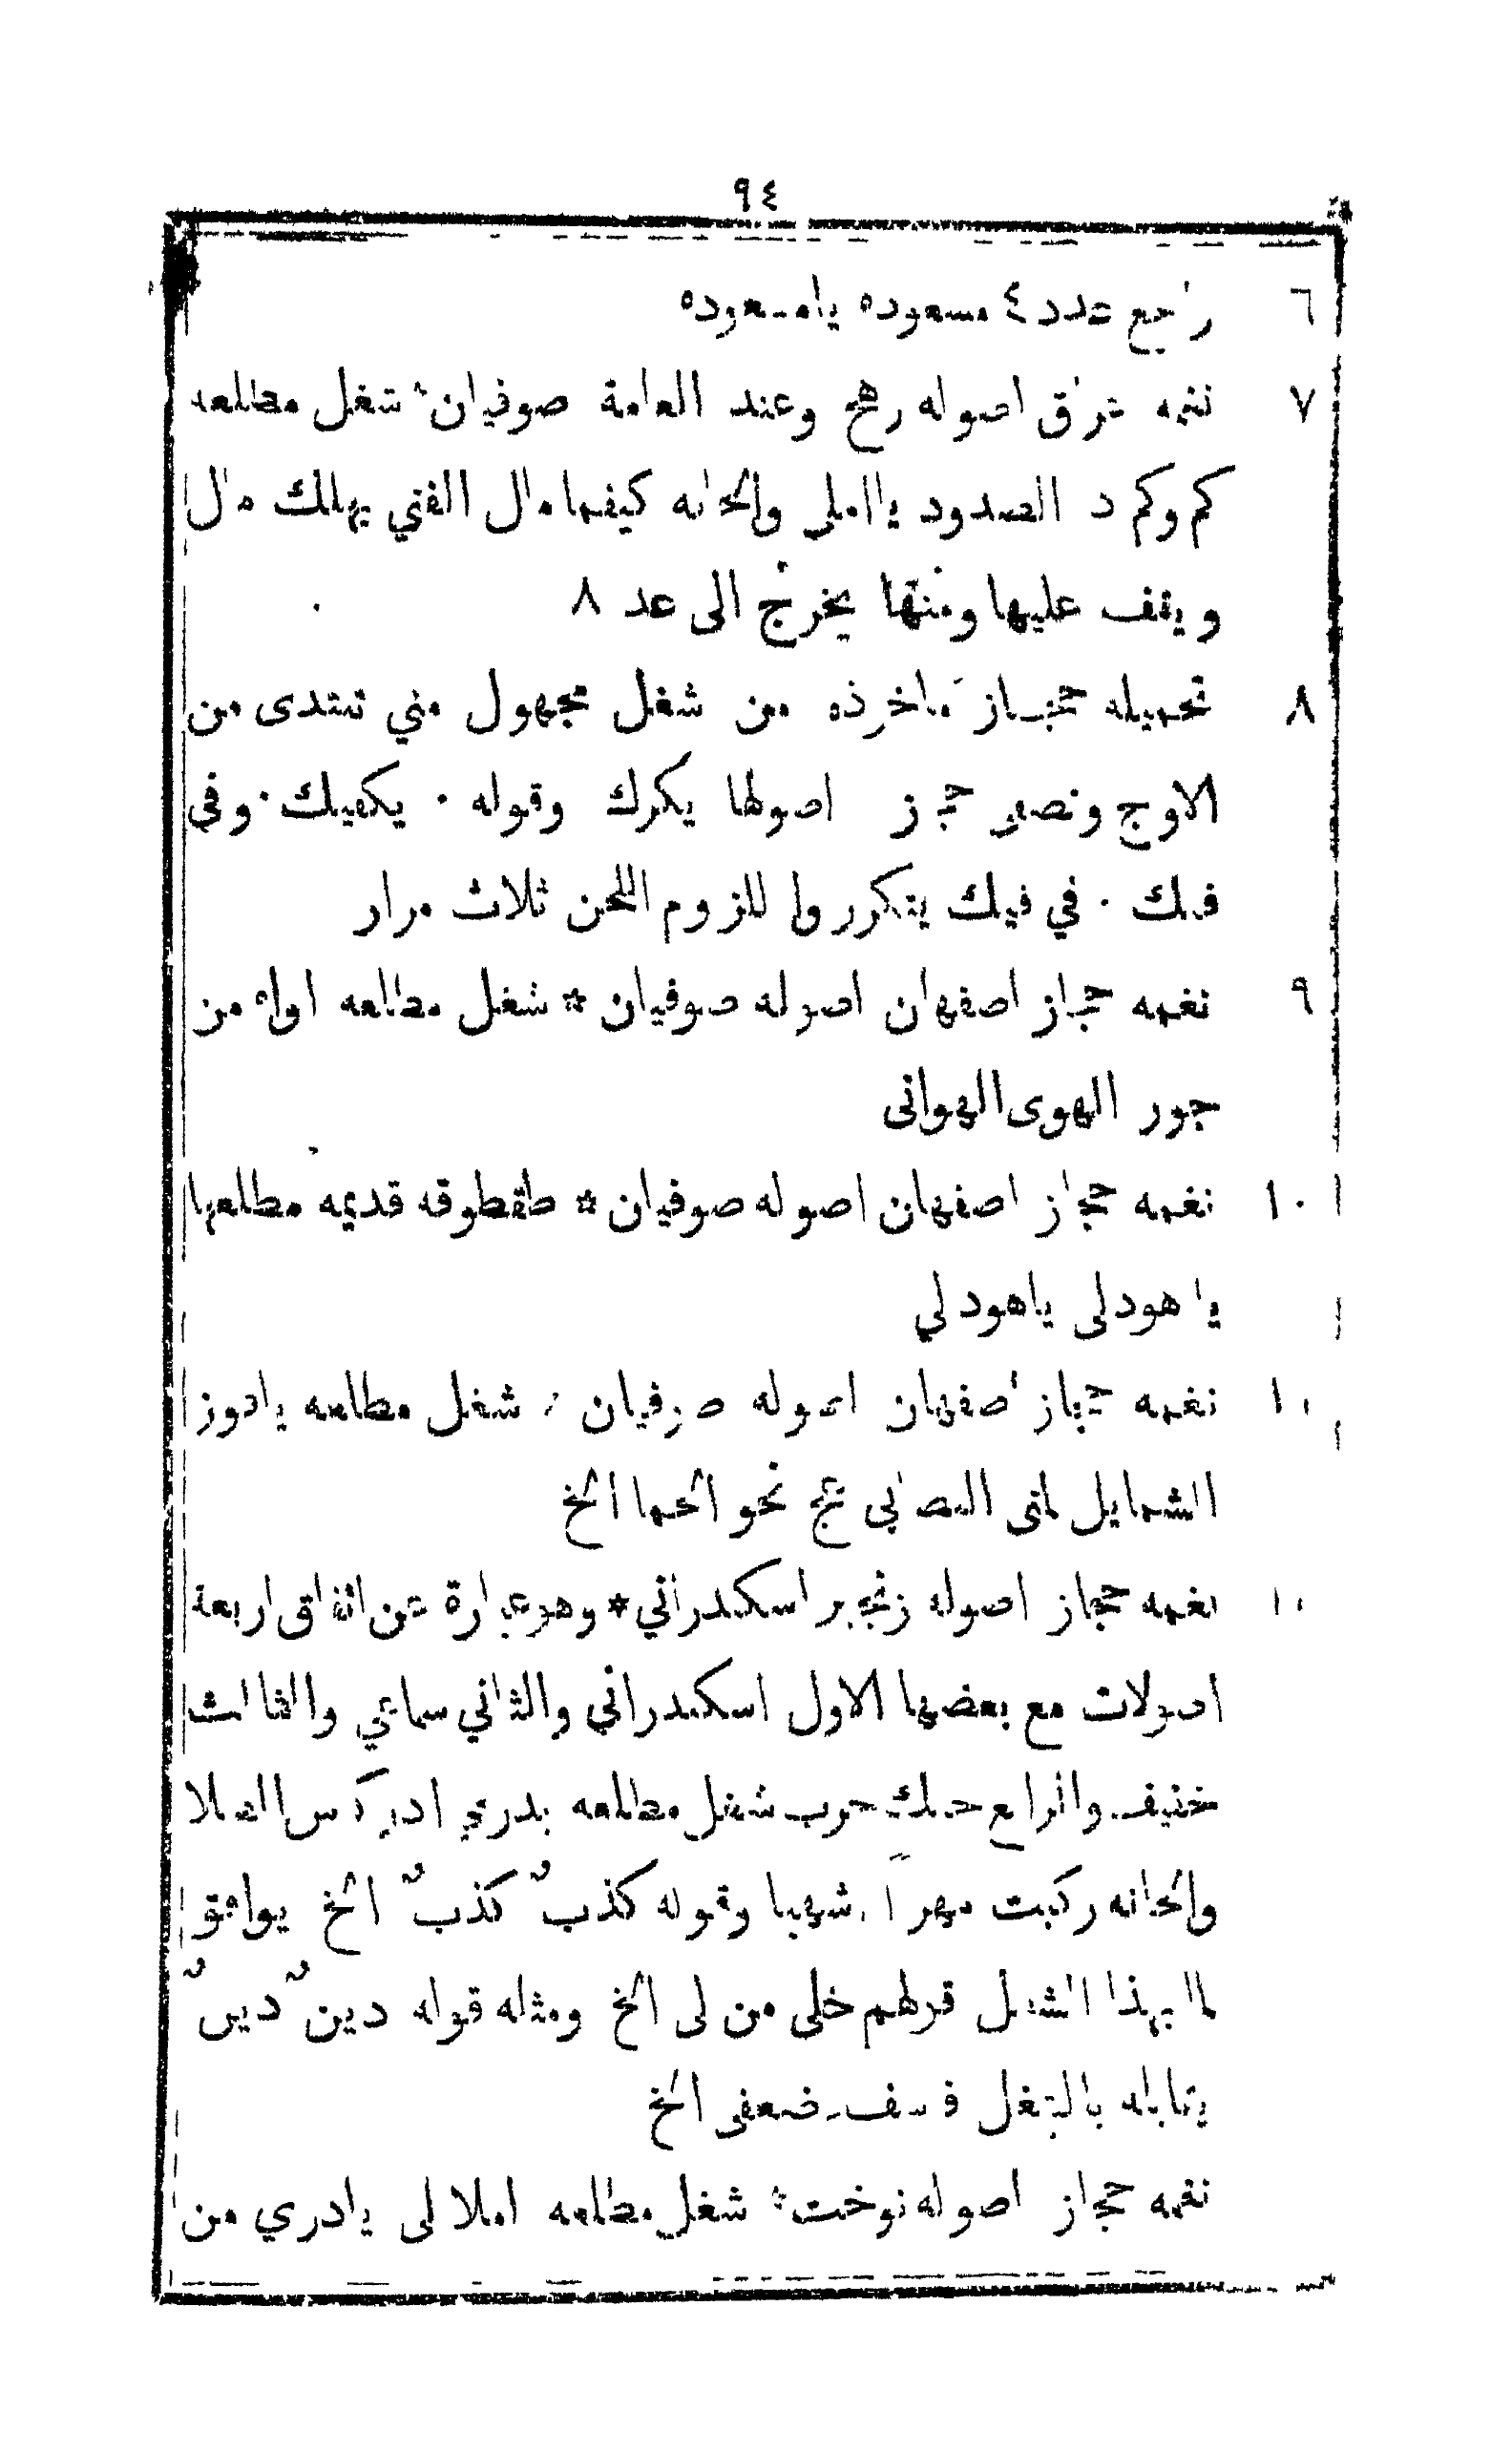 ٩٤
٦ راجع عدد ٤ مسعوده يامسعوده
٧ نغمه عراق اصوله رهج وعند العامة صوفيان * شغل مطلعه
كم وكم د الصدود ياأملي والخانه كيفما مال الفني يهلك مال
ويقف عليها ومنها يخرج الى عد ٨
٨ تحميله حجاز ماخوذه من شغل مجهول مني تبتدى من
الاوج وتصير حجاز اصولها يكرك وقوله · يكفيك · وفي
فيك · في فيك يتكرروا للزوم اللحن ثلاث مرار
٩ نغمه حجاز اصفهان اصوله صوفيان * شغل مطلعه اواه من
جور الهوى الهوانى
١٠ نغمه حجاز اصفهان اصوله صوفيان * طقطوقه قديمه مطلعها
يا هودلى ياهودلي
١١ نغمه حجاز اصفهان اصوله صوفيان * شغل مطلعه يا
الشمايل لمتى التصابي عج نحو الحما الخ
١٢ نغمه حجاز اصوله زنجير اسكندراني * وهو عبارة عن اتفاق اربعة
اصولات مع بعضها الاول اسكندراني والثاني سماعي والثالث
خفيف والرابع شغل مطلعه بدري ادر كاس الطلا
والخانه ركبت مهراً شهبا وقوله كذبٌ كذبٌ الخ يوافقو
لما بهذا الشغل قولهم خلى من لى الخ ومثله قوله دينٌ دينٌ
يقابله بالشغل ضعفى الخ
نغمه حجاز اصوله نوخت * شغل مطلعه املا لى يادري من